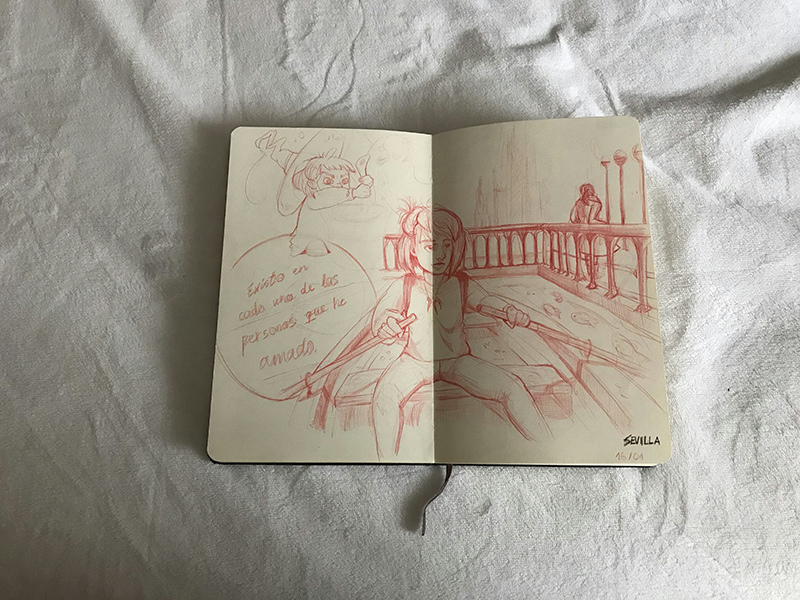 Existo en
cada una de las
personas que he
amado.
SEVILLA
16/01